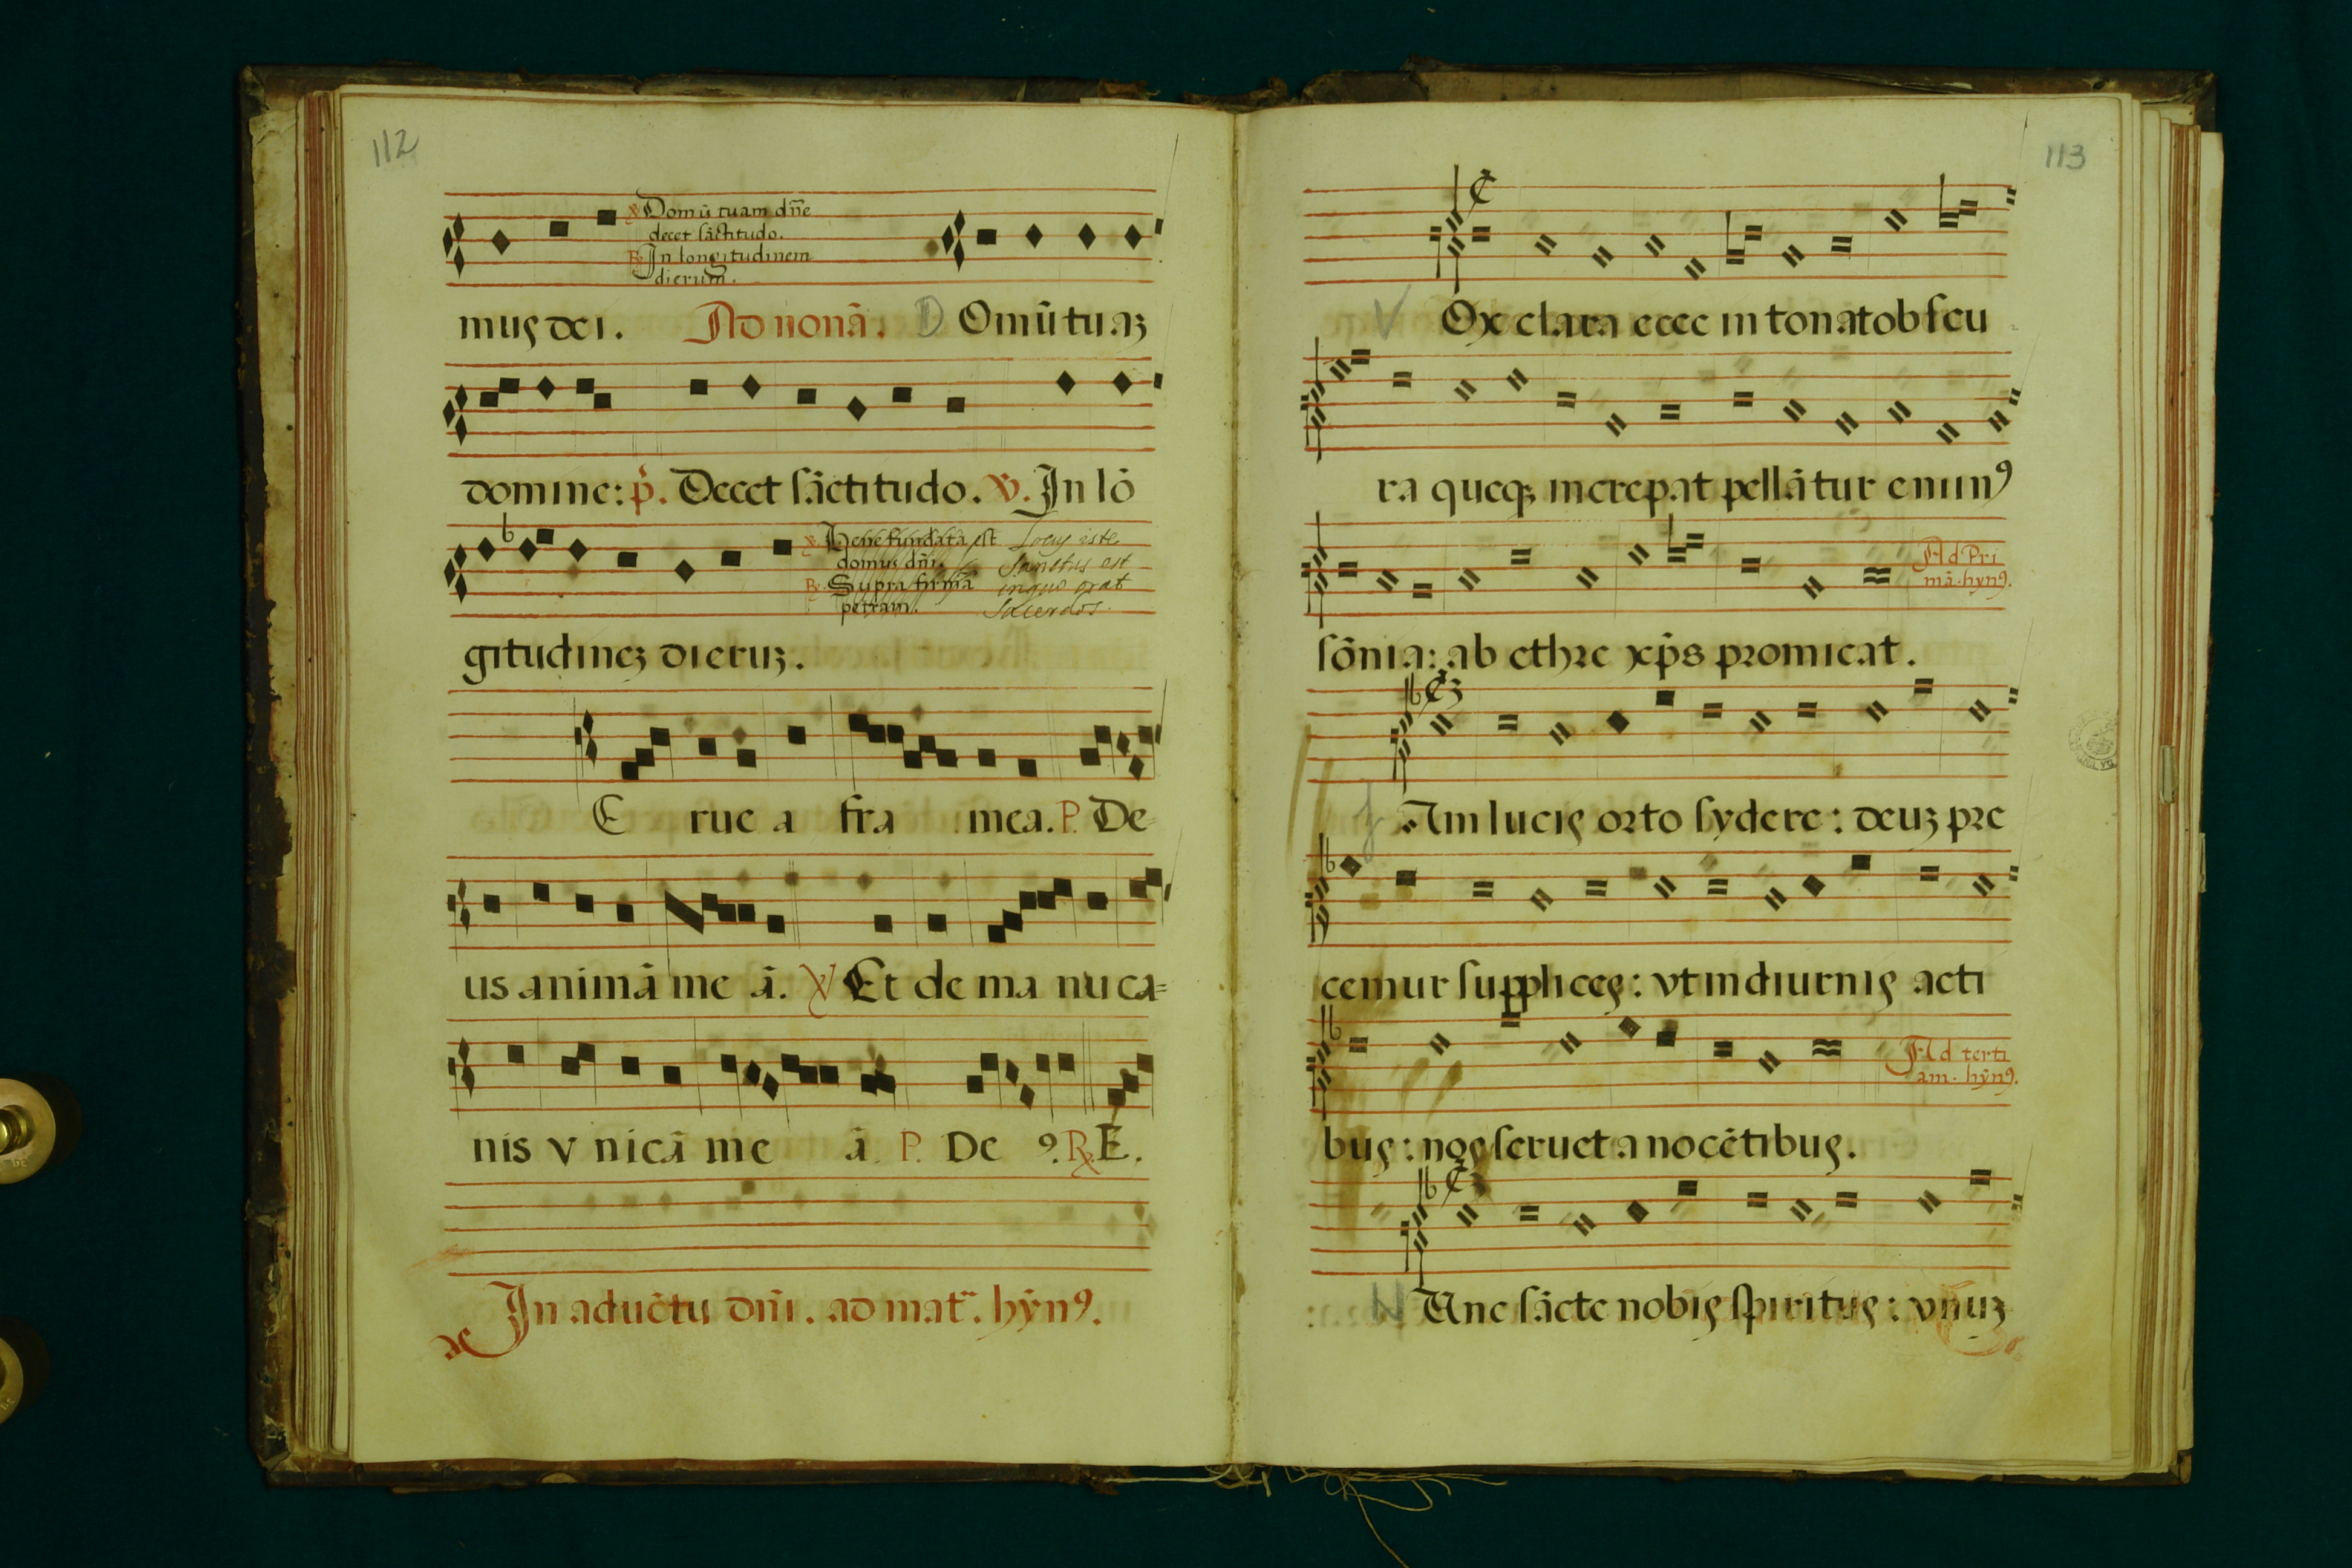 112
℣ Domū tuam dn̄e
decet sāctitudo.
℟ In longitudinem
dierum.
mus dei. Ad nonā. D Omū tuaʒ
domine: p̄. Decet sāctitudo. ℣. In lō
gitudineʒ dieruʒ.
℣ Bene fundata est
domus dn̄i.
℟ Supra firmā
petram.
Locus iste
Sanctus est
inquo orat
Sacerdos.
E rue a fra mea. P. De-
us animā me ā. ℣ Et de ma nu ca=
nis v nicā me ā. P. De ꝯ. ℟. E.
In aduētu dn̄i. ad mat̃. hȳnꝯ.
113
V Ox clara ecce in tonat obscu
ra queqꝫ increpat pellātur eminꝯ
sōnia: ab ethre xp̄s promicat.
Ad Pri
mā. hynꝯ.
J Am lucis orto sydere: deuʒ pre
cemur supplices: vt in diurnis acti
bus: nos seruet a nocētibus.
Ad terti
am. hȳnꝯ.
N Unc sācte nobis spiritus: vnuʒ